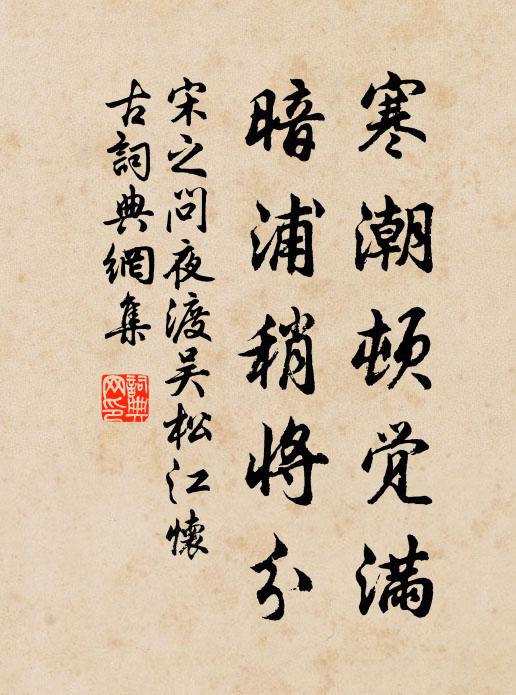 寒潮顿觉满
暗浦稍将分
宋之问夜渡吴松江懷
古詞典網集
詞典网印